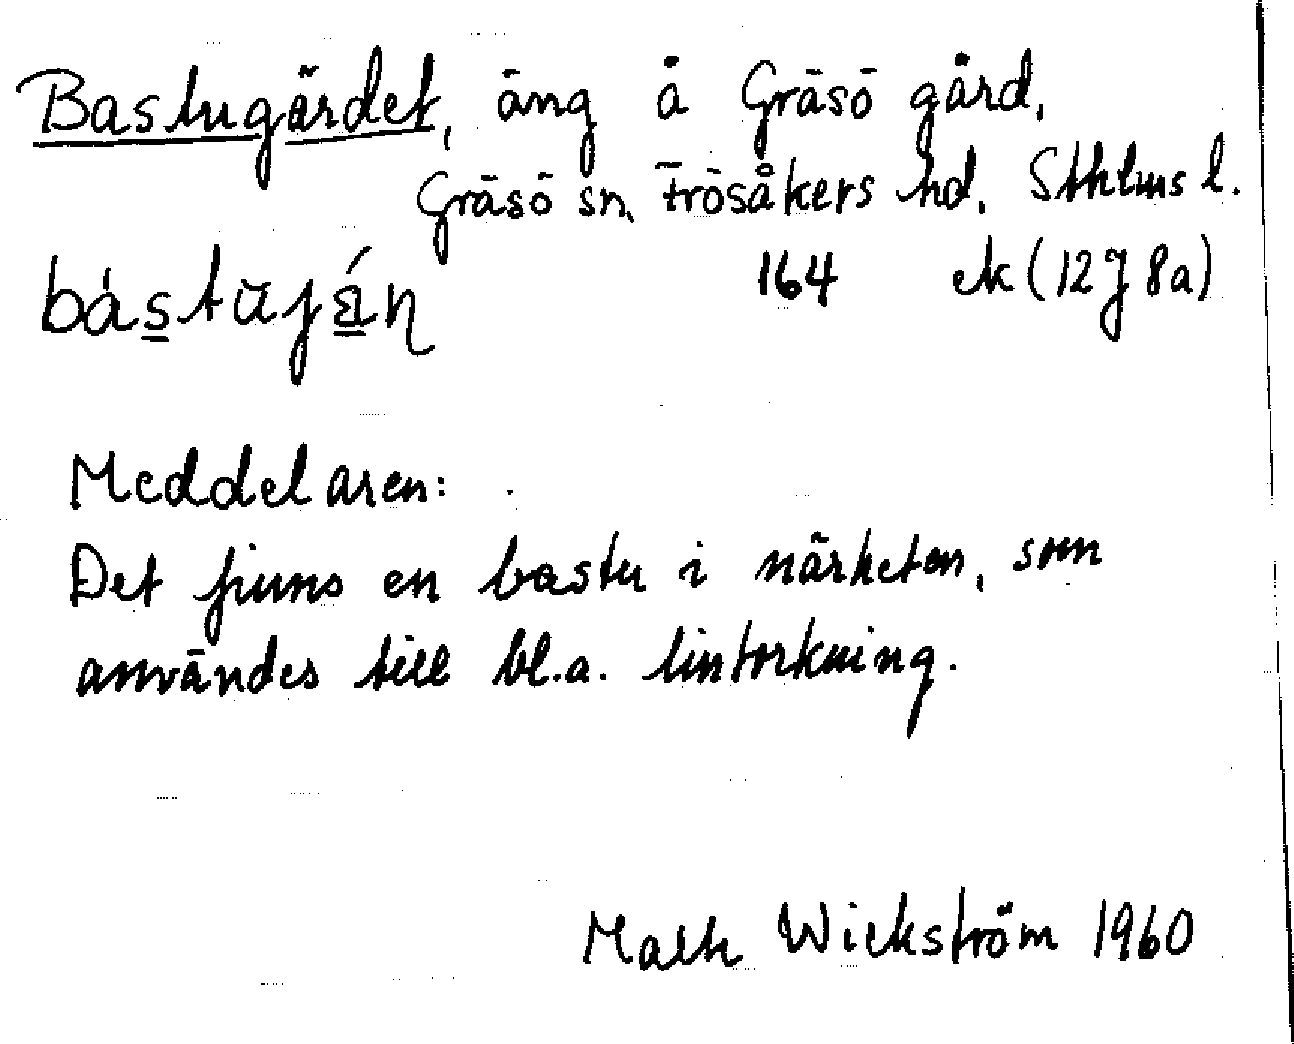 Bastugärdet, äng å Gräsö gård,
Gräsö sn, Frösåkers hd. Sthlms l.
164 ek (12 J 8a)
Meddelaren:
Det finns en bastu i närheten, som
användes till bl.a. lintorkning.
Wickström 1960